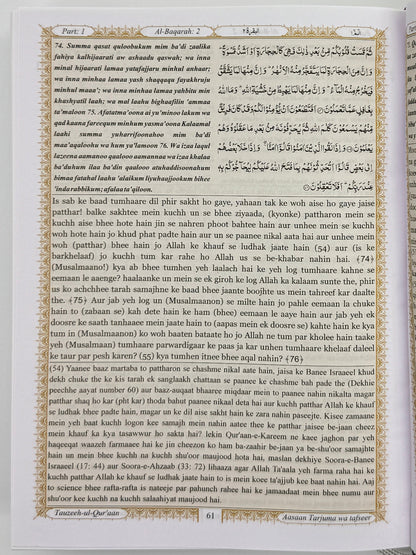 Part: 1
Al-Baqarah: 2
البقرة ٢
الٓمّٓ ١
74. Summa qasat quloobukum mim ba'di zaalika
fahiya kalhijaarati aw ashaddu qaswah; wa inna
minal hijaarati lamaa yatafajjaru minhul anhaar;
wa inna minhaa lamaa yash shaqqaqu fayakhruju
minhul maaa'; wa inna minhaa lamaa yahbitu min
khashyatil laah; wa mal laahu bighaafilin 'ammaa
ta'maloon 75. Afatatma'oona ai yu'minoo lakum wa
qad kaana fareequm minhum yasma'oona Kalaamal
laahi summa yuharrifoonahoo mim ba'di
maa'aqaloohu wa hum ya'lamoon 76. Wa izaa laqul
lazeena aamanoo qaalooo aamannaa wa izaa khalaa
ba'duhum ilaa ba'din qaalooo atuhaddisoonahum
bimaa fatahal laahu 'alaikum liyuhaajjookum bihee
'inda rabbikum; afalaa ta'qiloon.
ثُمَّ قَسَتْ قُلُوْبُكُمْ مِّنْ بَعْدِ ذٰلِكَ فَهِيَ كَالْحِجَارَةِ اَوْ اَشَدُّ قَسْوَةً ؕ
وَاِنَّ مِنَ الْحِجَارَةِ لَمَا يَتَفَجَّرُ مِنْهُ الْاَنْهٰرُ ؕ وَاِنَّ مِنْهَا لَمَا يَشَّقَّقُ
فَيَخْرُجُ مِنْهُ الْمَآءُ ؕ وَاِنَّ مِنْهَا لَمَا يَهْبِطُ مِنْ خَشْيَةِ اللّٰهِ ؕ وَمَا اللّٰهُ
بِغَافِلٍ عَمَّا تَعْمَلُوْنَ ۝ اَفَتَطْمَعُوْنَ اَنْ يُّؤْمِنُوْا لَكُمْ وَقَدْ كَانَ فَرِيْقٌ
مِّنْهُمْ يَسْمَعُوْنَ كَلٰمَ اللّٰهِ ثُمَّ يُحَرِّفُوْنَهٗ مِنْۢ بَعْدِ مَا عَقَلُوْهُ وَهُمْ
يَعْلَمُوْنَ ۝ وَاِذَا لَقُوا الَّذِيْنَ اٰمَنُوْا قَالُوْٓا اٰمَنَّا ۚ وَاِذَا خَلَا بَعْضُهُمْ
اِلٰى بَعْضٍ قَالُوْٓا اَتُحَدِّثُوْنَهُمْ بِمَا فَتَحَ اللّٰهُ عَلَيْكُمْ لِيُحَآجُّوْكُمْ بِهٖ
عِنْدَ رَبِّكُمْ ؕ اَفَلَا تَعْقِلُوْنَ ۝
Is sab ke baad tumhaare dil phir sakht ho gaye, yahaan tak ke woh aise ho gaye jaise
patthar! balke sakhtee mein kuchh un se bhee ziyaada, (kyonke) pattharon mein se
kuchh aise bhee hote hain jin se nahren phoot bahtee hain aur unhee mein se kuchh
woh hote hain jo khud phat padte hain aur un se paanee nikal aata hai aur unhee mein
woh (patthar) bhee hain jo Allah ke khauf se ludhak jaate hain (54) aur (is ke
barkhelaaf) jo kuchh tum kar rahe ho Allah us se be-khabar nahin hai. ﴾74﴿
(Musalmaano!) kya ab bhee tumhen yeh laalach hai ke yeh log tumhaare kahne se
eemaan le aaenge? haalaanke un mein se ek giroh ke log Allah ka kalaam sunte the, phir
us ko achchhee tarah samajhne ke baad bhee jaante boojhte us mein tahreef kar daalte
the. ﴾75﴿ Aur jab yeh log un (Musalmaanon) se milte hain jo pahle eemaan la chuke
hain to (zabaan se) kah dete hain ke ham (bhee) eemaan le aaye hain aur jab yeh ek
doosre ke saath tanhaaee mein jaate hain to (aapas mein ek doosre se) kahte hain ke kya
tum in (Musalmaanon) ko woh baaten bataate ho jo Allah ne tum par kholee hain taake
yeh (Musalmaan) tumhaare parwardigaar ke paas ja kar unhen tumhare khelaaf daleel
ke taur par pesh karen? (55) kya tumhen itnee bhee aqal nahin? ﴾76﴿
(54) Yaanee baaz martaba to pattharon se chashme nikal aate hain, jaisa ke Banee Israaeel khud
dekh chuke the ke kis tarah ek sanglaakh chattaan se paanee ke chashme bah pade the (Dekhie
peechhe aayat number 60) aur baaz-auqaat bhaaree miqdar mein to paanee nahin nikalta magar
patthar shaq ho kar (pht kar) thoda bahut paanee nikaal deta hai aur kuchh patthar Allah ke khauf
se ludhak bhee padte hain, magar un ke dil aise sakht hain ke zara nahin paseejte. Kisee zamaane
mein yeh baat kuchh logon kee samajh mein nahin aatee thee ke patthar jaisee be-jaan cheez
mein khauf ka kya tasawwur ho sakta hai? lekin Qur'aan-e-Kareem ne kaee jaghon par yeh
haqeeqat waazeh farmaaee hai ke jin cheezon ko ham ba-zaahir be-jaan ya be-shu'oor samajhte
hain un mein bhee kuchh na kuchh shu'oor maujood hota hai, maslan dekhiye Soora-e-Banee
Israaeel (17: 44) aur Soora-e-Ahzaab (33: 72) lihaaza agar Allah Ta'aala yeh farma raha hai ke
kuchh patthar Allah ke khauf se ludhak jaate hain to is mein koee ta'ajjub kee baat nahin hai. Aaj
to science bhee rafta-rafta is nateeje par pahunch rahee hai ke jamaadaat mein bhee numu aur
shu'oor kee kuchh na kuchh salaahiyat maujood hai.
Tauzeeh-ul-Qur'aan
61
Aasaan Tarjuma wa tafseer